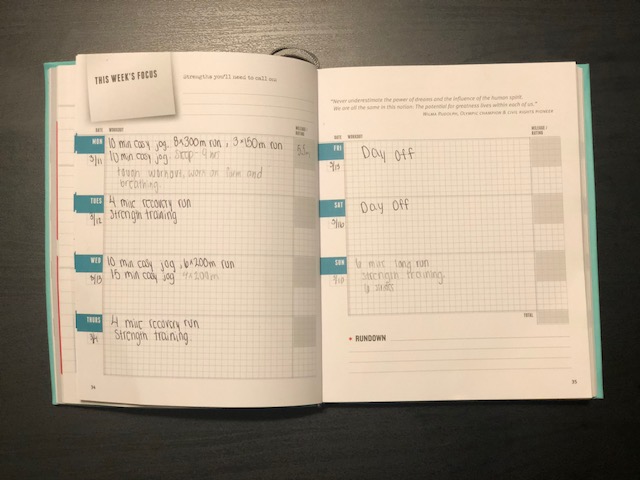 THIS WEEK'S FOCUS
Strengths you'll need to call out
DATE WORKOUT MILEAGE / RATING
MON 10 min easy jog, 8x300m run, 3x150m run 5.5
3/11 10 min easy jog Sleep - 9 hr
tough workout, work on form and
breathing
TUES 4 mile recovery run
3/12 Strength training
WED 10 min easy jog, 6x200m run
3/13 15 min easy jog 4x200m
THURS 4 mile recovery run
Strength training
34
"Never underestimate the power of dreams and the influence of the human spirit.
We are all the same in this notion: The potential for greatness lives within each of us."
WILMA RUDOLPH, OLYMPIC CHAMPION & CIVIL RIGHTS PIONEER
DATE WORKOUT MILEAGE / RATING
FRI Day off
SAT Day off
3/16
SUN 6 mile long run
Strength training
TOTAL
RUNDOWN
35